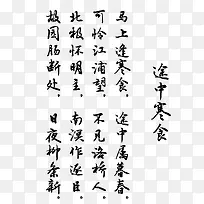 途中寒食
马上逢寒食，
途中属暮春。
可怜江浦望，
不见洛桥人。
北极怀明主，
南溟作逐臣。
故园肠断处，
日夜柳条新。